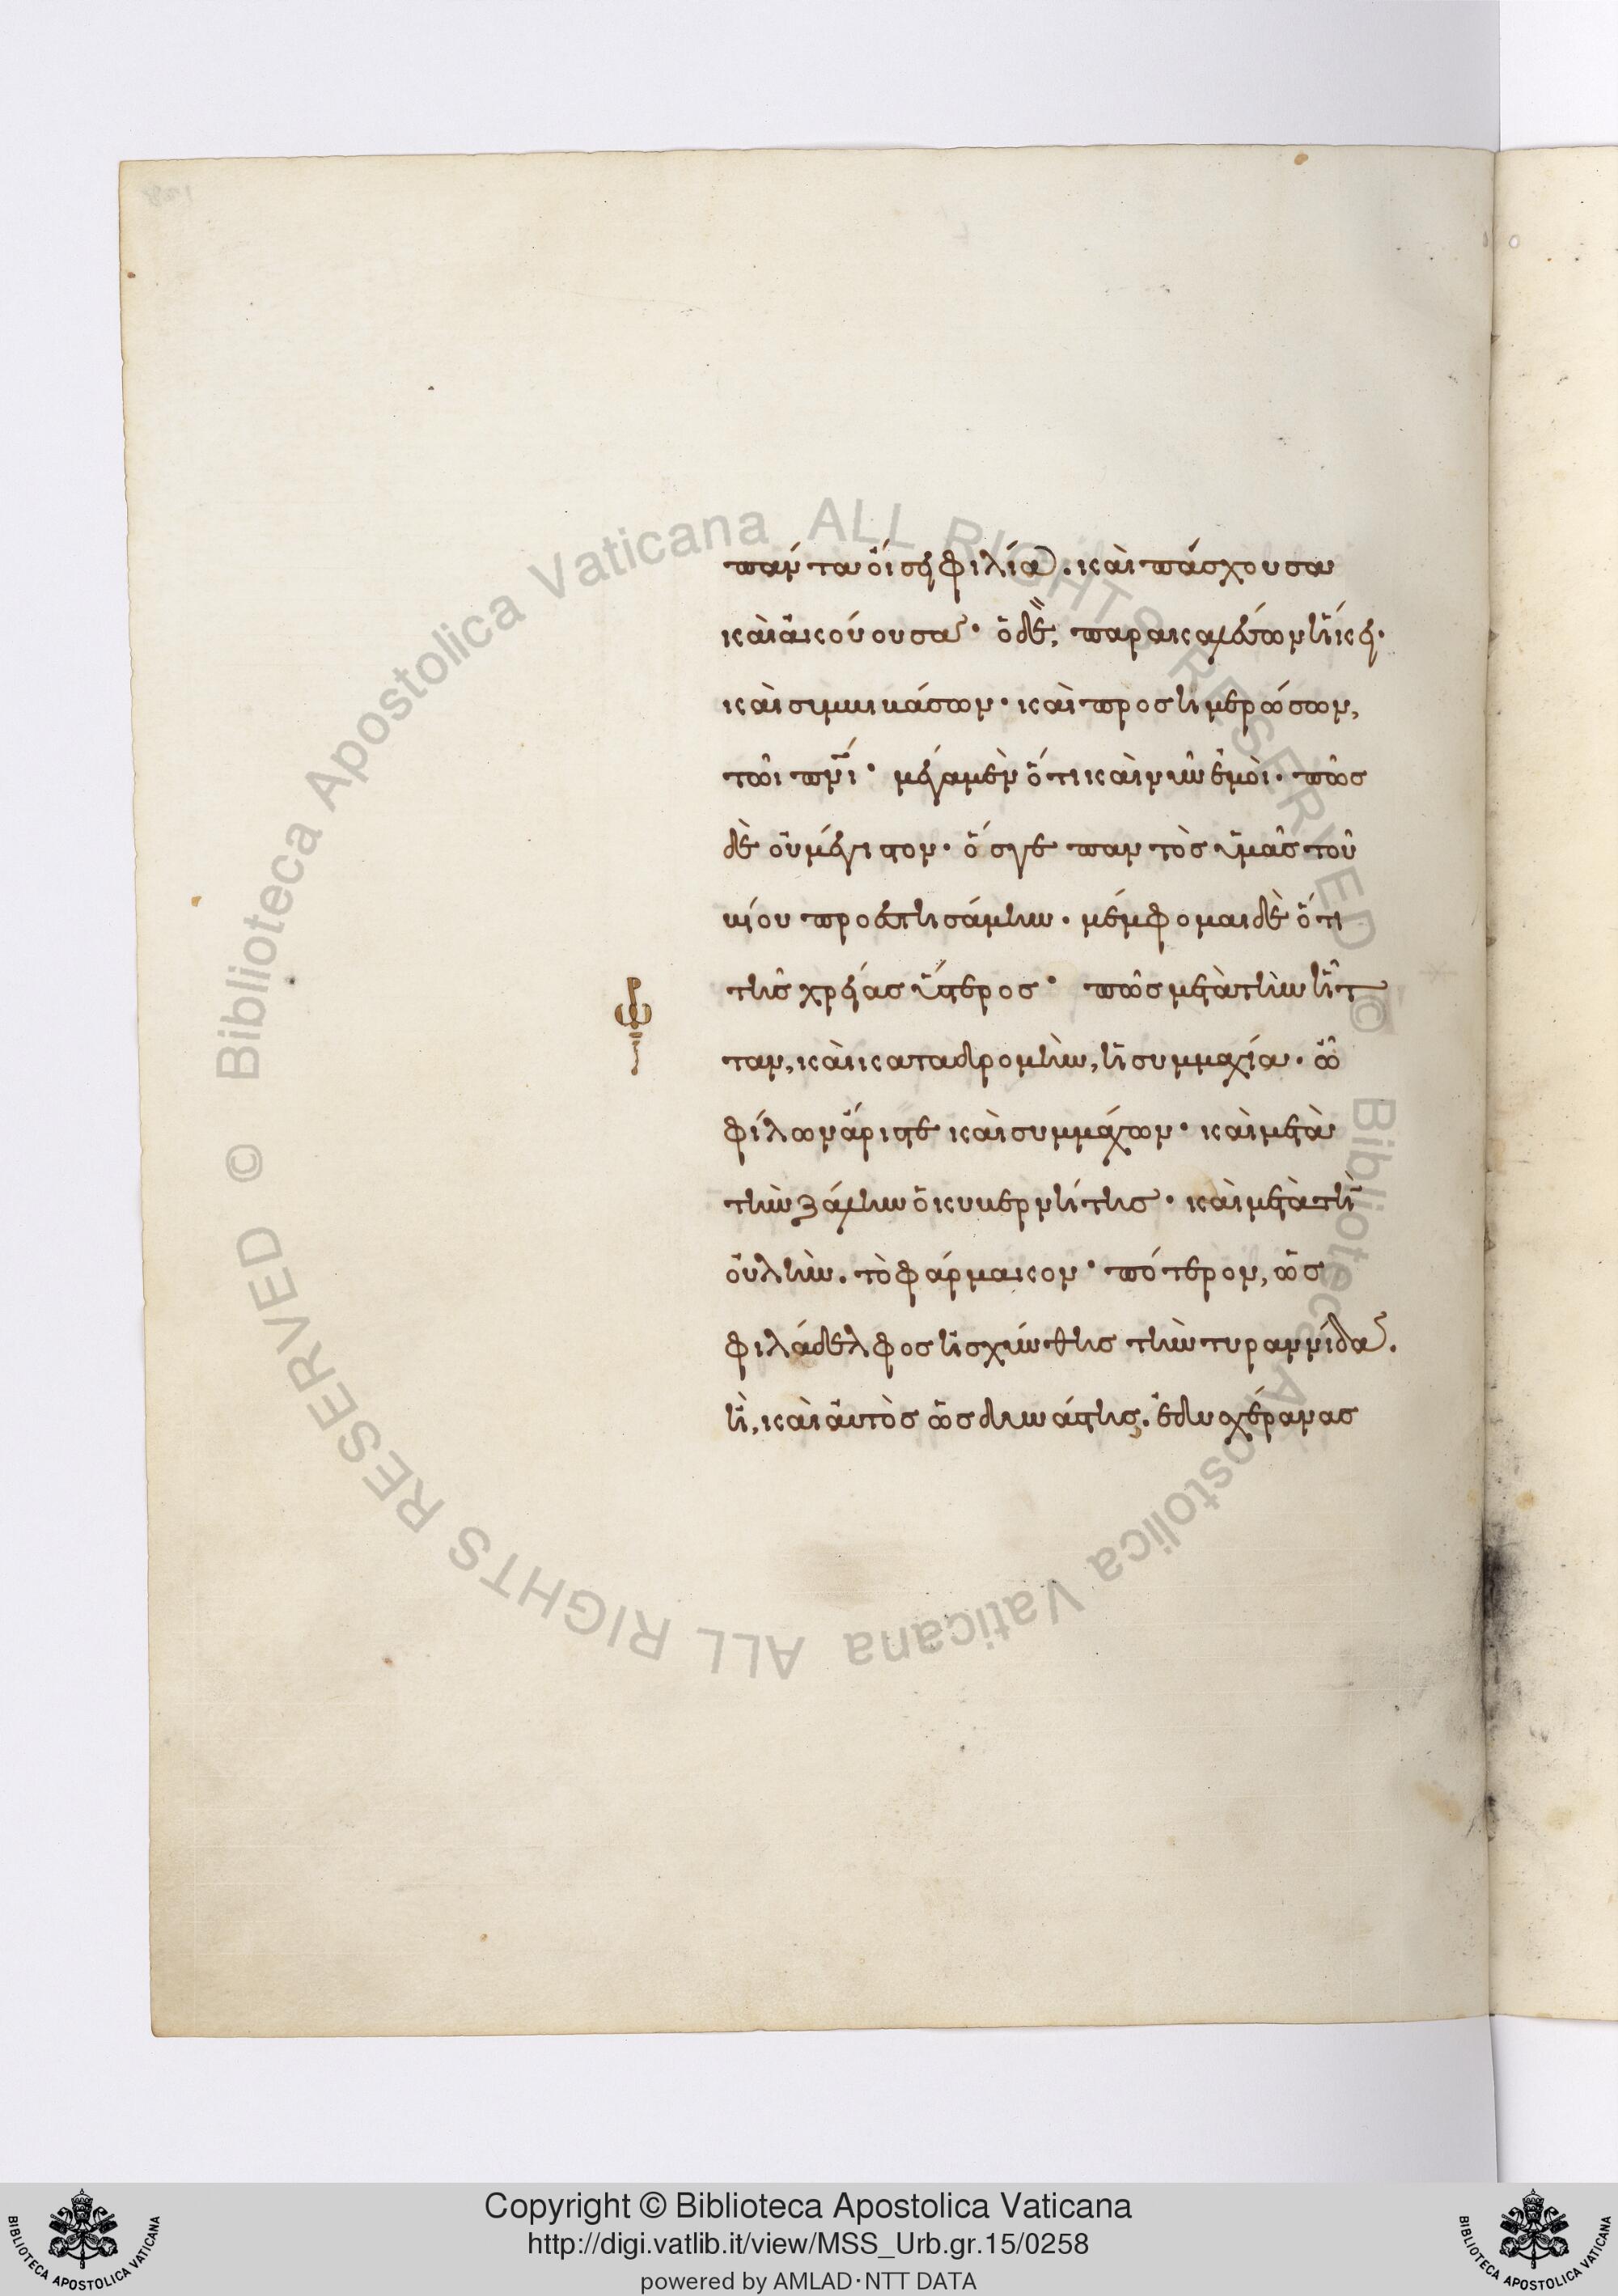 πάντα οἴσει φιλία. καὶ πάσχουσα
καὶ ἀκούουσα· ὁ δὲ, παρακαλέσων ἥκει·
καὶ συμβιβάσων· καὶ προσημερώσων,
τῶι πρι· μέγα μὲν ὅτι καὶ νῦν ἐμοὶ· πῶς
δὲ οὐ μέγιστον· ὅς γε παντὸς ὑμᾶς τοῦ
βίου προεστησάμην. μέμφομαι δὲ ὅτι
τῆς χρείας ὕστερος· πῶς μετὰ τὴν ἧτ
ταν, καὶ καταδρομὴν, ἡ συμμαχία. ὦ
φίλων ἄριστε καὶ συμμάχων· καὶ μετὰ
τὴν ζάλην ὁ κυβερνήτης· καὶ μετὰ τὴ
οὐλὴν. τὸ φάρμακον· πότερον, ὡς
φιλάδελφος ἠσχύνθης τὴν τυραννίδα.
ἢ, καὶ αὐτὸς ὡς δυνάστης. ἐδυσχέρανας
Copyright © Biblioteca Apostolica Vaticana
http://digi.vatlib.it/view/MSS_Urb.gr.15/0258
powered by AMLAD·NTT DATA
BIBLIOTECA APOSTOLICA VATICANA
BIBLIOTECA APOSTOLICA VATICANA
© Biblioteca Apostolica Vaticana ALL RIGHTS RESERVED © Biblioteca Apostolica Vaticana ALL RIGHTS RESERVED